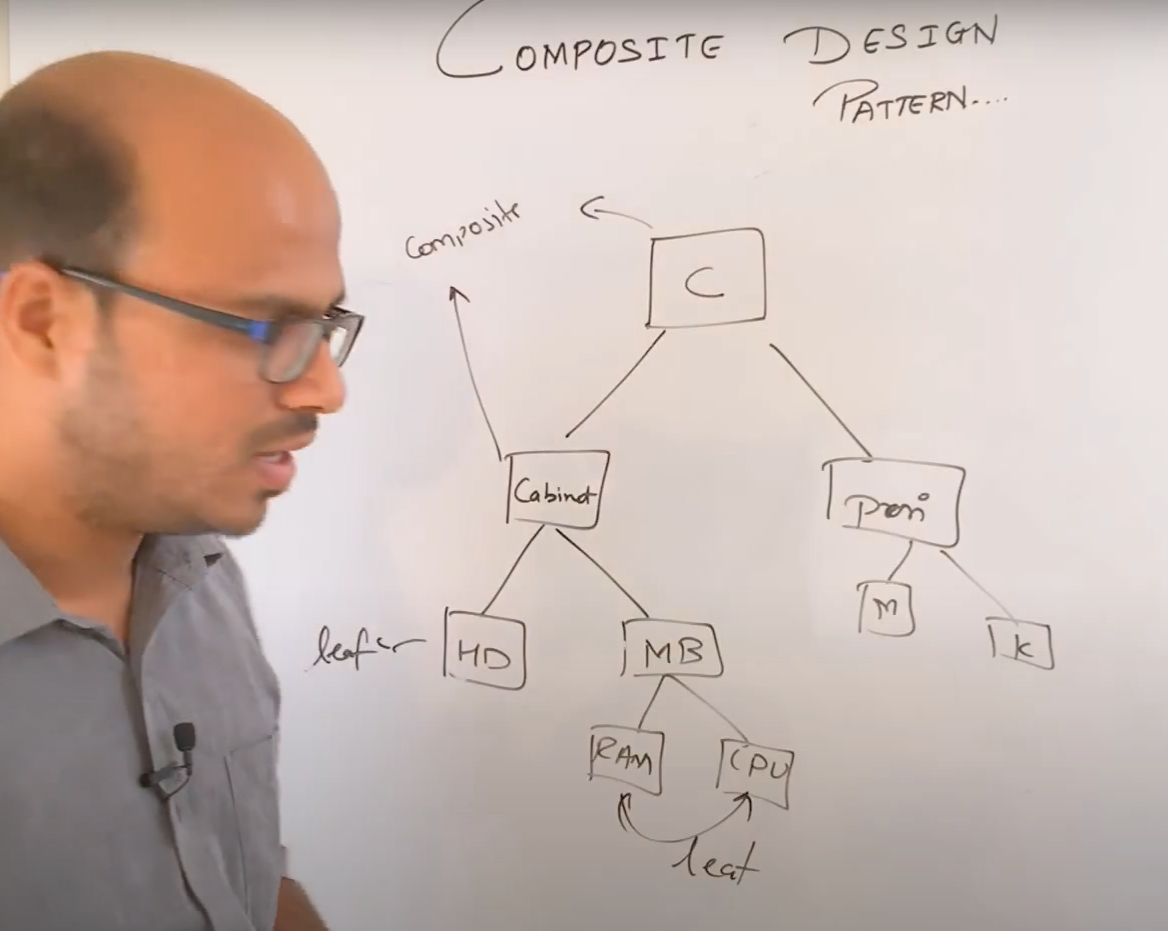 COMPOSITE DESIGN
PATTERN....
Composite
C
Cabinet
Peri
HD
MB
M
K
leaf
RAM
CPU
leaf